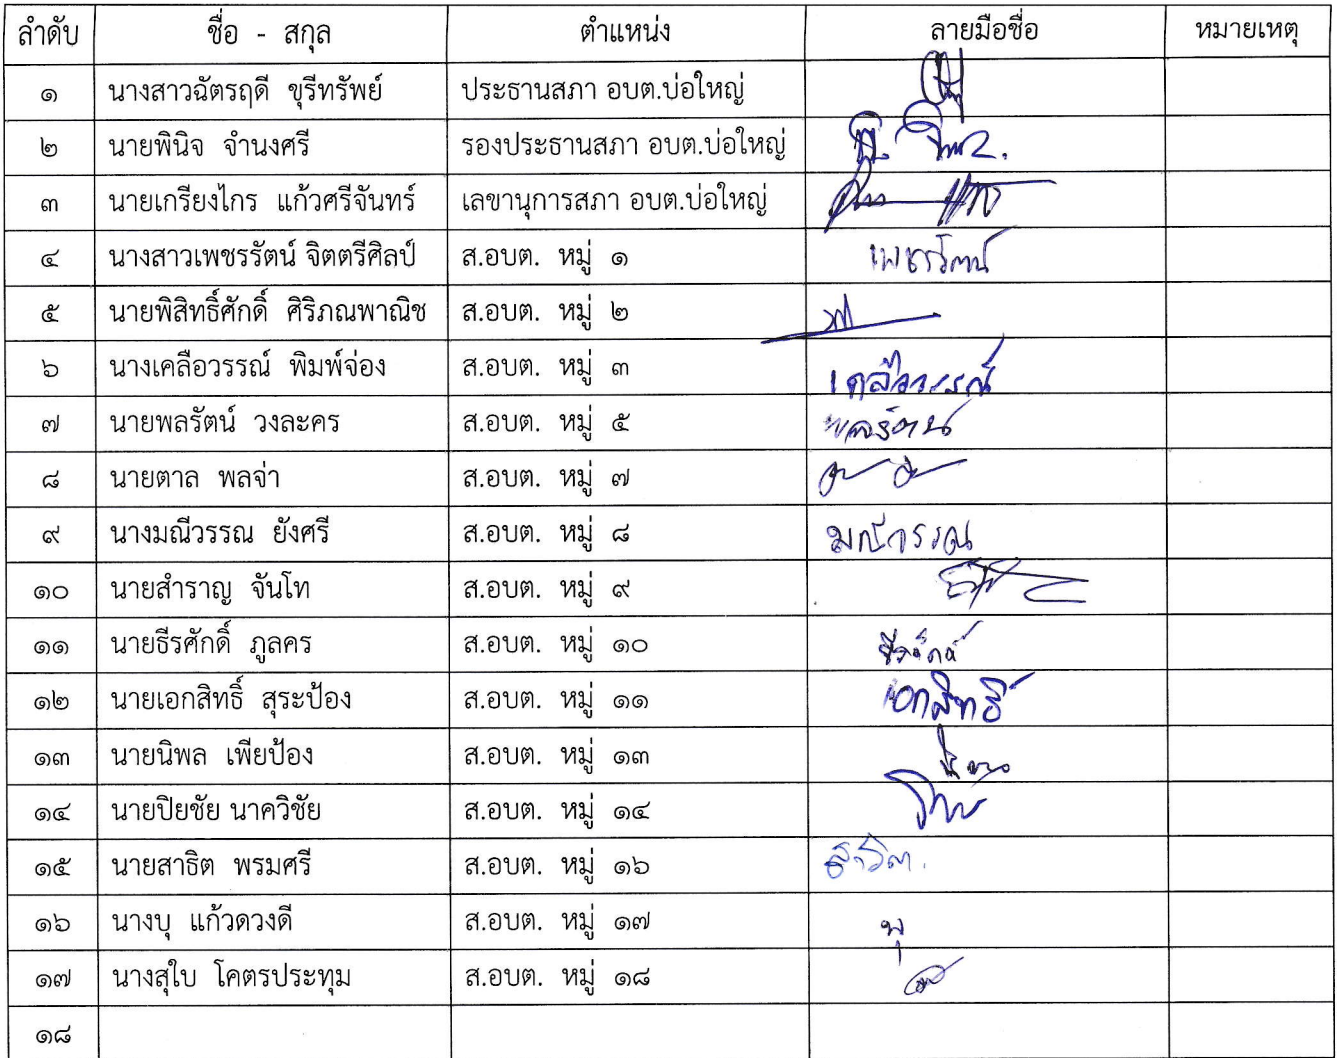 ลำดับ ชื่อ - สกุล ตำแหน่ง ลายมือชื่อ หมายเหตุ
๑ นางสาวฉัตรฤดี ขุรีทรัพย์ ประธานสภา อบต.บ่อใหญ่
๒ นายพินิจ จำนงศรี รองประธานสภา อบต.บ่อใหญ่
๓ นายเกรียงไกร แก้วศรีจันทร์ เลขานุการสภา อบต.บ่อใหญ่
๔ นางสาวเพชรรัตน์ จิตตรีศิลป์ ส.อบต. หมู่ ๑ เพชรรัตน์
๕ นายพิสิทธิ์ศักดิ์ ศิริภณพาณิช ส.อบต. หมู่ ๒
๖ นางเคลือวรรณ์ พิมพ์จ่อง ส.อบต. หมู่ ๓ เคลือวรรณ์
๗ นายพลรัตน์ วงละคร ส.อบต. หมู่ ๕ พลรัตน์
๘ นายตาล พลจ่า ส.อบต. หมู่ ๗
๙ นางมณีวรรณ ยังศรี ส.อบต. หมู่ ๘ มณีวรรณ
๑๐ นายสำราญ จันโท ส.อบต. หมู่ ๙
๑๑ นายธีรศักดิ์ ภูลคร ส.อบต. หมู่ ๑๐
๑๒ นายเอกสิทธิ์ สุระป้อง ส.อบต. หมู่ ๑๑ เอกสิทธิ์
๑๓ นายนิพล เพียป้อง ส.อบต. หมู่ ๑๓
๑๔ นายปิยชัย นาควิชัย ส.อบต. หมู่ ๑๔
๑๕ นายสาธิต พรมศรี ส.อบต. หมู่ ๑๖
๑๖ นางบุ แก้วดวงดี ส.อบต. หมู่ ๑๗ พุ
๑๗ นางสุใบ โคตรประทุม ส.อบต. หมู่ ๑๘
๑๘